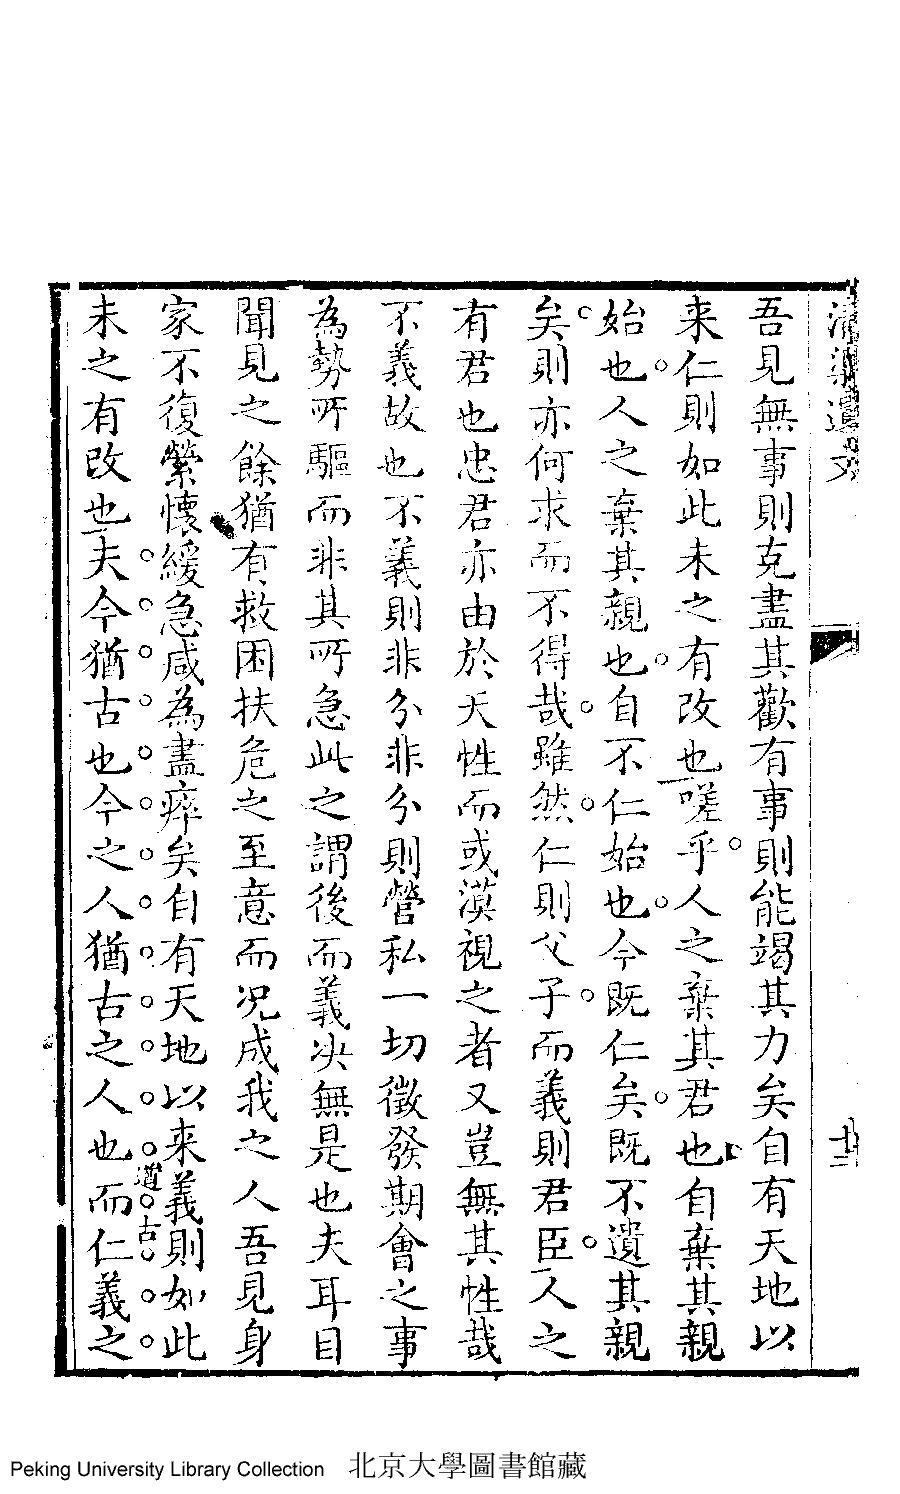 遺文
吾見無事則克盡其歡有事則能竭其力矣自有天地以
来仁則如此未之有改也嗟乎人之棄其君也自棄其親
始也人之棄其親也自不仁始也今既仁矣既不遺其親
矣則亦何求而不得哉雖然仁則父子而義則君臣人之
有君也忠君亦由於天性而或漠視之者又豈無其性哉
不義故也不義則非分非分則營私一切徵發期會之事
為勢所驅而非其所急此之謂後而義决無是也夫耳目
聞見之餘猶有救困扶危之至意而况成我之人吾見身
家不復縈懷緩急咸為盡瘁矣自有天地以来義則如此
道古
未之有改也夫今猶古也今之人猶古之人也而仁義之
Peking University Library Collection 北京大學圖書館藏